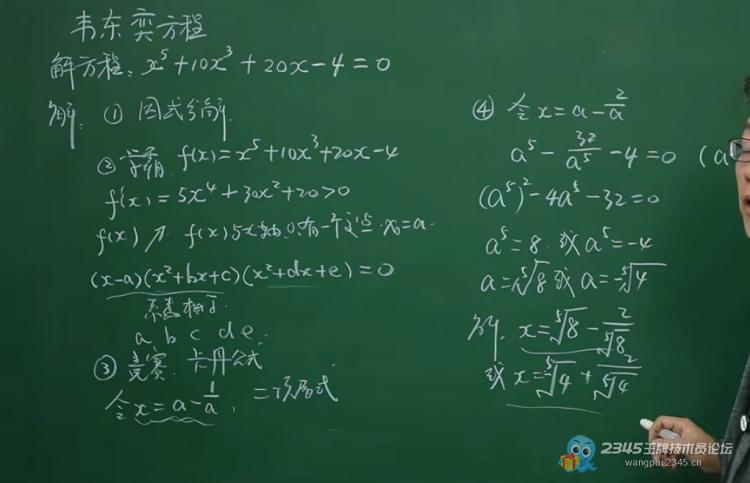 韦东奕方程
解方程: x⁵+10x³+20x-4=0
解: ① 因式分解
② 学霸 f(x)=x⁵+10x³+20x-4
f(x)=5x⁴+30x²+20>0
f(x)↗ f(x)与x轴只有一个交点 x₀=a.
(x-a)(x²+bx+c)(x²+dx+e)=0
系数相等.
a, b c d e.
③ 竞赛. 卡丹公式
令x=a-1/a, 二项展式
④ 令x=a-2/a
a⁵-32/a⁵-4=0 (a
(a⁵)²-4a⁵-32=0
a⁵=8.或a⁵=-4
a=⁵√8或a=-⁵√4
解. x=⁵√8-2/⁵√8
或x=-⁵√4+2/⁵√4
2345王牌技术员论坛
wangpai.2345.cn